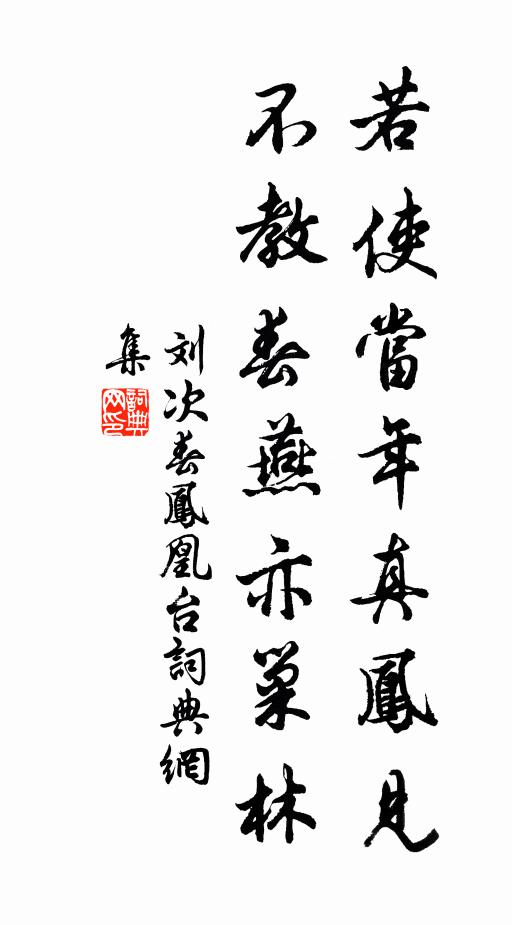 若使當年真鳳見
不教春燕亦巢林
刘次春鳳凰台詞典網
集
詞典
网印